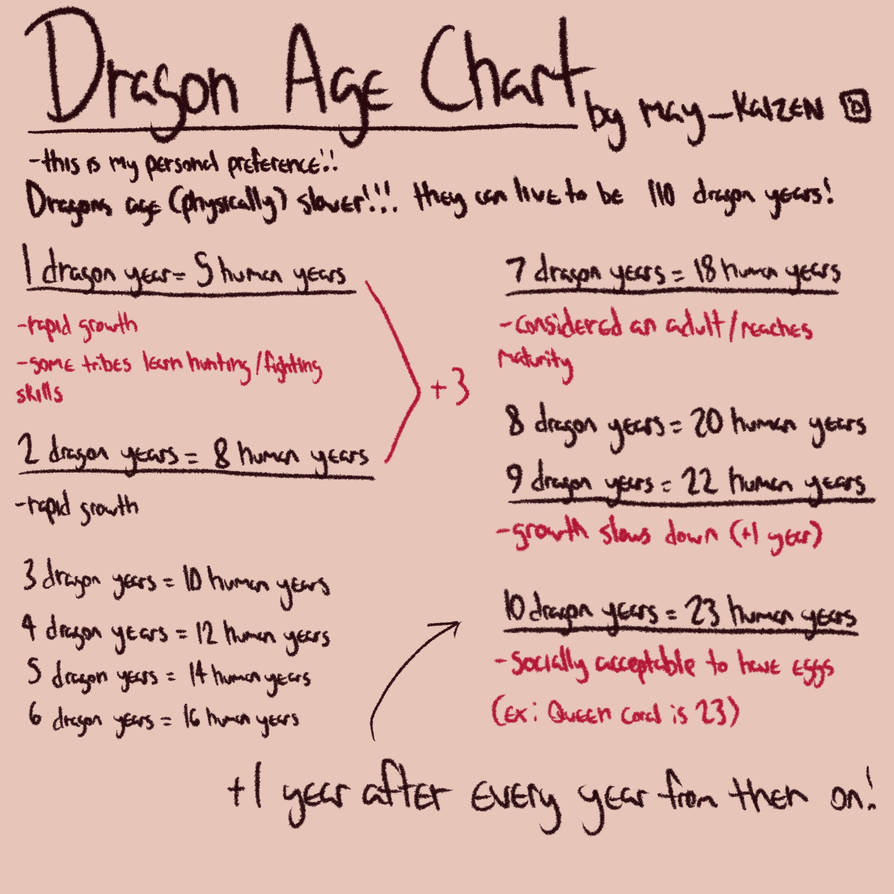 Dragon Age Chart
by may_KAIZEN
-this is my personal preference!!
Dragons age (physically) slower!!! they can live to be 110 dragon years!
1 dragon year = 5 human years
-rapid growth
-some tribes learn hunting/fighting
skills
+3
2 dragon years = 8 human years
-rapid growth
3 dragon years = 10 human years
4 dragon years = 12 human years
5 dragon years = 14 human years
6 dragon years = 16 human years
7 dragon years = 18 human years
-considered an adult/reaches
maturity
8 dragon years = 20 human years
9 dragon years = 22 human years
-growth slows down (+1 year)
10 dragon years = 23 human years
-socially acceptable to have eggs
(Ex: Queen Coral is 23)
+1 year after every year from then on!